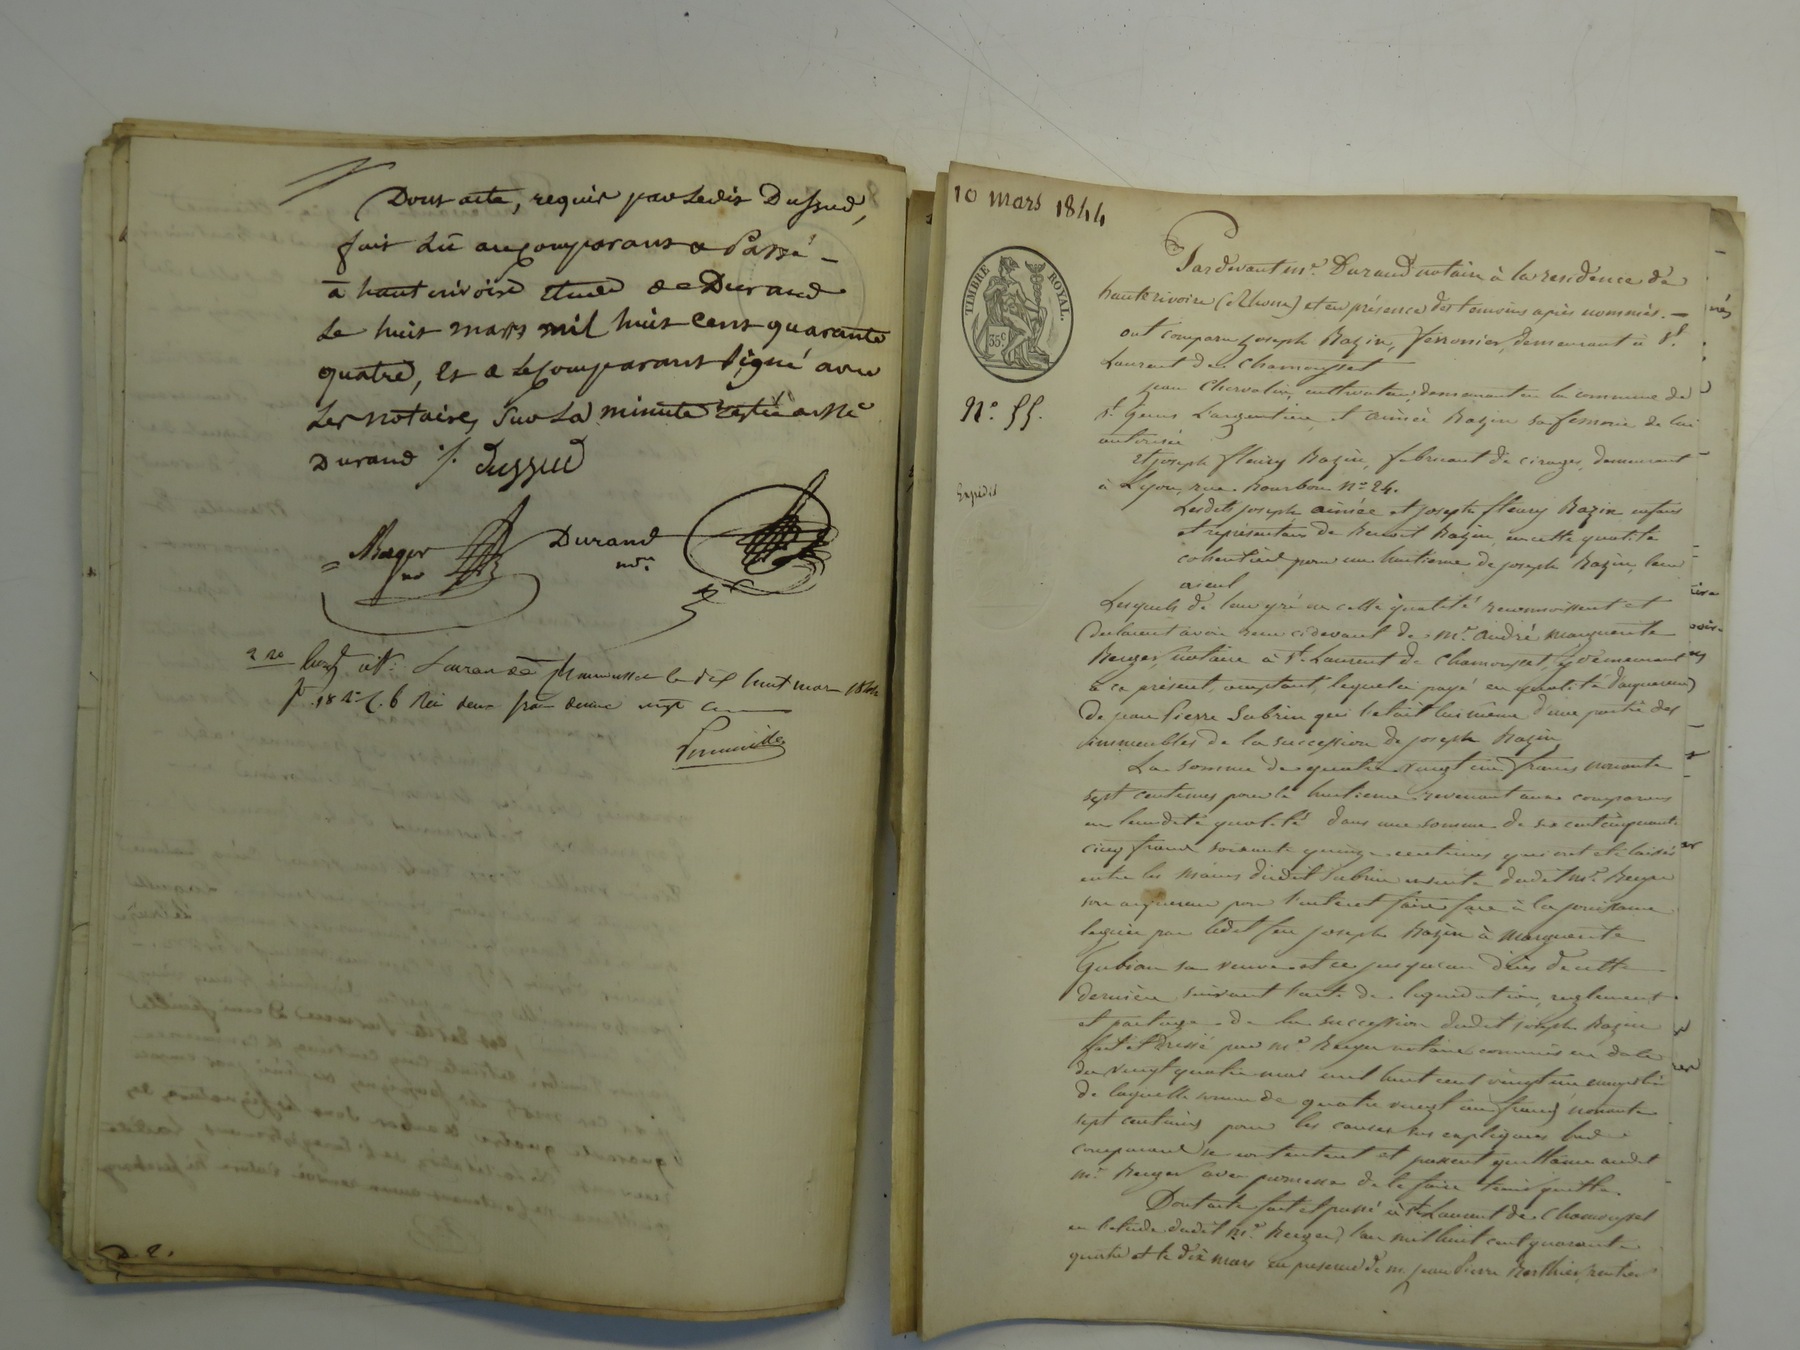 Dont acte, requis par ledit Dussud,
fait lû au comparant & Passé –
à hauterivoire Etude de Durand
Le huit mars mil huit cent quarante
quatre, Et a le comparant Signé avec
Les notaires, Sur la minute restée à Me
Durand ./. Dussud
Berger
nre
Durand
nre
2 20
St Laurent de Chamousset le dix huit mars 1844
fo 18 Vo C. 6 Reçu deux francs vingt cen
D. 2.
10 mars 1844
TIMBRE ROYAL.
35c
No 55.
Expédié
Pardevant Me Durand notaire à la residence de
hauterivoire (Rhone) et en présence des temoins après nommés. –
ont comparu Joseph Bazin, ferronier, demeurant à St
Laurent de Chamousset
jean cultivateur, demeurant en la commune de
St Genis L'argentière, et aimée Bazin sa femme de lui
autorisée
et joseph fleury Bazin, fabricant de cirages, demeurant
à Lyon, rue Bourbon No 24.
Lesdits joseph aimée et joseph fleury Bazin enfans
et représentans de Benoit Bazin, en cette qualité
cohéritiers pour un huitieme de joseph Bazin, leur
aieul
Lesquels de leur gré en cette qualité reconnoissent et
declarent avoir reçu cidevant de Me andré marguerite
Berger, notaire à St Laurent de Chamousset, y demeurant
à ce présent, comptant, lequel a payé en qualité d'acquereur
de jean Pierre Subrin qui l'etait lui même d'une partie des
immeubles de la succession de joseph Bazin,
La somme de quatre vingt un francs nonante
sept centimes pour le huitieme revenant aux comparans
en leurdite qualité dans une somme de six cent cinquante
cinq francs soixante quinze centimes qui ont été laissés
entre les mains dudit Subrin ensuite dudit Me Berger
son acquereur pour l'interet faire face à la jouissance
leguée par ledit feu joseph Bazin à marguerite
Gubian sa veuve et ce jusqu'au décès de cette
dernière suivant l'acte de liquidation, reglement
et partage de la succession dudit joseph Bazin
fait et dressé par Me Berger notaire commis en date
du vingt quatre mai mil huit cent vingt un enregistré
de laquelle somme de quatre vingt un francs nonante
sept centimes pour les causes sus expliquées les
comparans se contentent et passent quittance audit
Me Berger avec promesse de le faire tenir quitte.
Dont acte fait et passé à St Laurent de Chamousset
en l'etude dudit Me Berger, l'an mil huit cent quarante
quatre et le dix mars en présence de m. jean Pierre Berthier, rentier